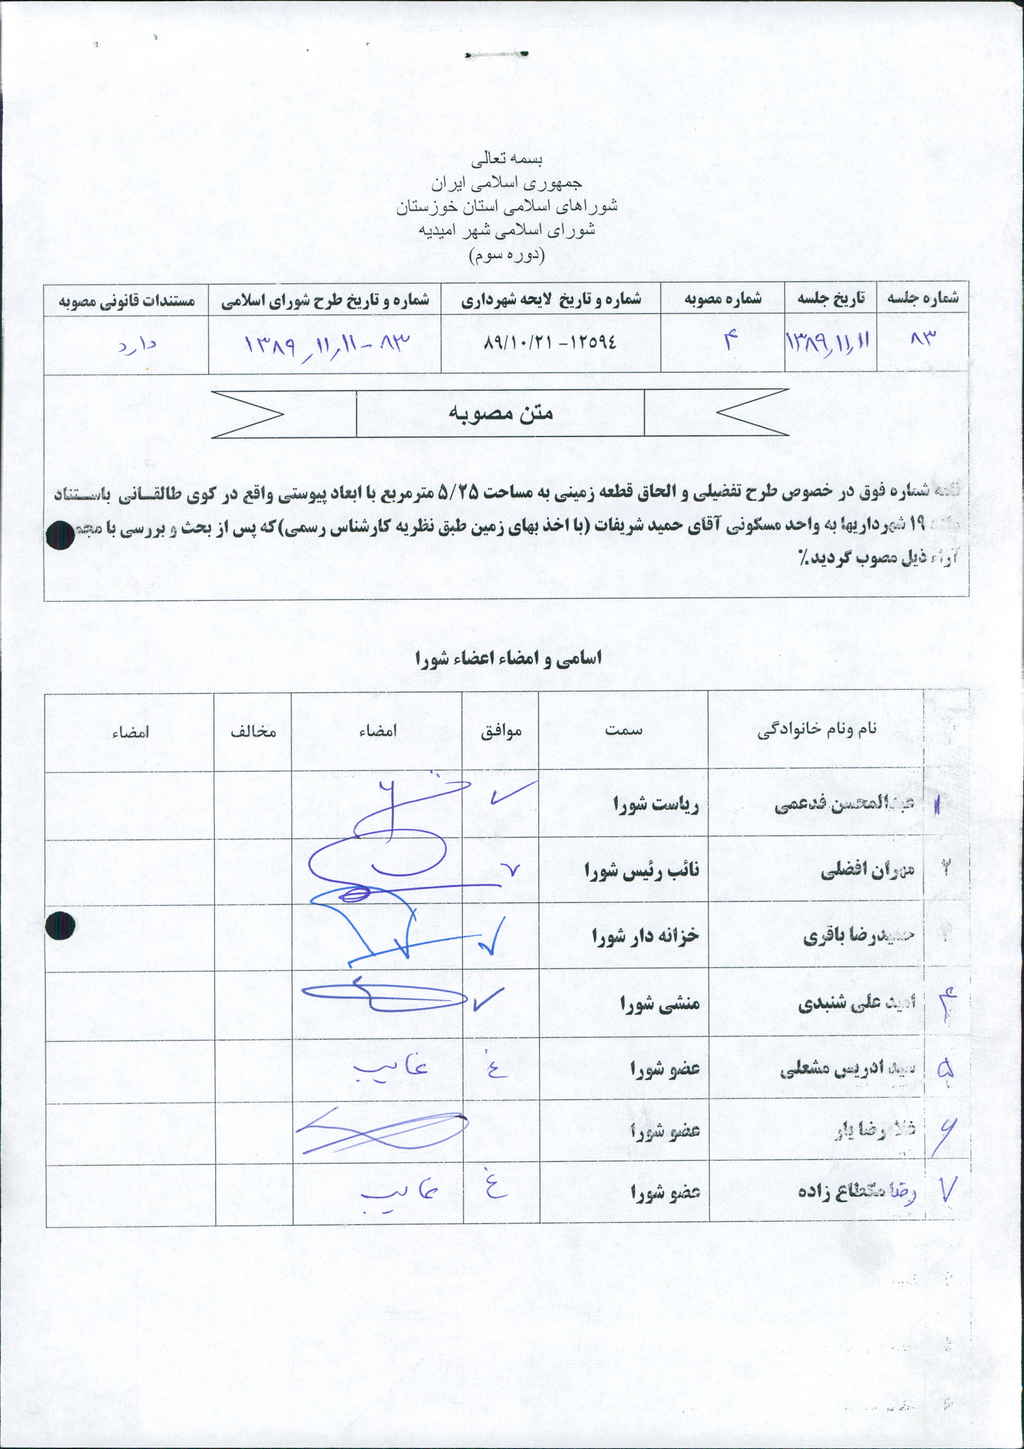 بسمه تعالی
جمهوری اسلامی ایران
شوراهای اسلامی استان خوزستان
شورای اسلامی شهر امیدیه
(دوره سوم)
شماره جلسه تاریخ جلسه شماره مصوبه شماره و تاریخ لایحه شهرداری شماره و تاریخ طرح شورای اسلامی مستندات قانونی مصوبه
۸۳ ۱۳۸۹٫۱۱٫۱۱ ۴ ۱۲۵۹۴- ۸۹/۱۰/۲۱ ۸۳ – ۱۱٫۱۱٫ ۱۳۸۹ دارد
متن مصوبه
نامه شماره فوق در خصوص طرح تفضیلی و الحاق قطعه زمینی به مساحت ۵/۲۵ مترمربع با ابعاد پیوستی واقع در کوی طالقانی باستناد
۱۹ شهرداریها به واحد مسکونی آقای حمید شریفات (با اخذ بهای زمین طبق نظریه کارشناس رسمی)که پس از بحث و بررسی با
آراء ذیل مصوب گردید٪
اسامی و امضاء اعضاء شورا
نام ونام خانوادگی سمت موافق امضاء مخالف امضاء
۱ عبدالمحسن فدعمی ریاست شورا ✓
۲ مهران افضلی نائب رئیس شورا ✓
۳ حمیدرضا باقری خزانه دار شورا ✓
۴ امید علی شنبدی منشی شورا ✓
۵ سید ادریس مشعلی عضو شورا غ غایب
۶ غلامرضا یار عضو شورا
۷ رضا مقطاع زاده عضو شورا غ غایب